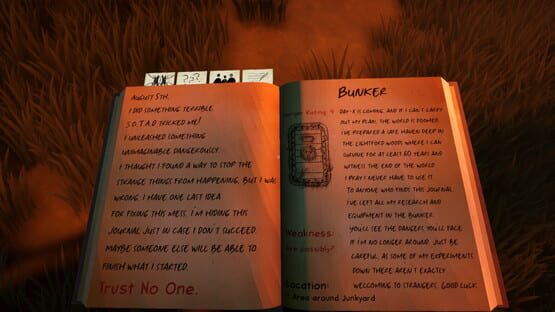 August 5th.
I did something terrible.
S.O.T.A.D tricked me!
I unleashed something
unimaginable dangerously.
I thaught I found a way to stop the
strange things from happening, but I was
wrong. I have one last idea
for fixing this mess. I'm hiding this
journal just in case I don't succeed.
Maybe someone else will be able to
finish what I started.
Trust No One.
Bunker
Rating 4
Day-X is coming, and if I can't carry
out my plan, the world is doomed.
I've prepared a safe haven deep in
the Lightford woods where I can
survive for at least 60 years and
witness the end of the world.
I pray I never have to use it.
To anyone who finds this journal
I've left all my research and
equipment in the bunker.
You'll see the dangers you'll face
if I'm no longer around. Just be
careful, as some of my experiments
down there aren't exactly
welcoming to strangers. Good luck.
Weakness:
Fire possibly?
Location:
Area around Junkyard